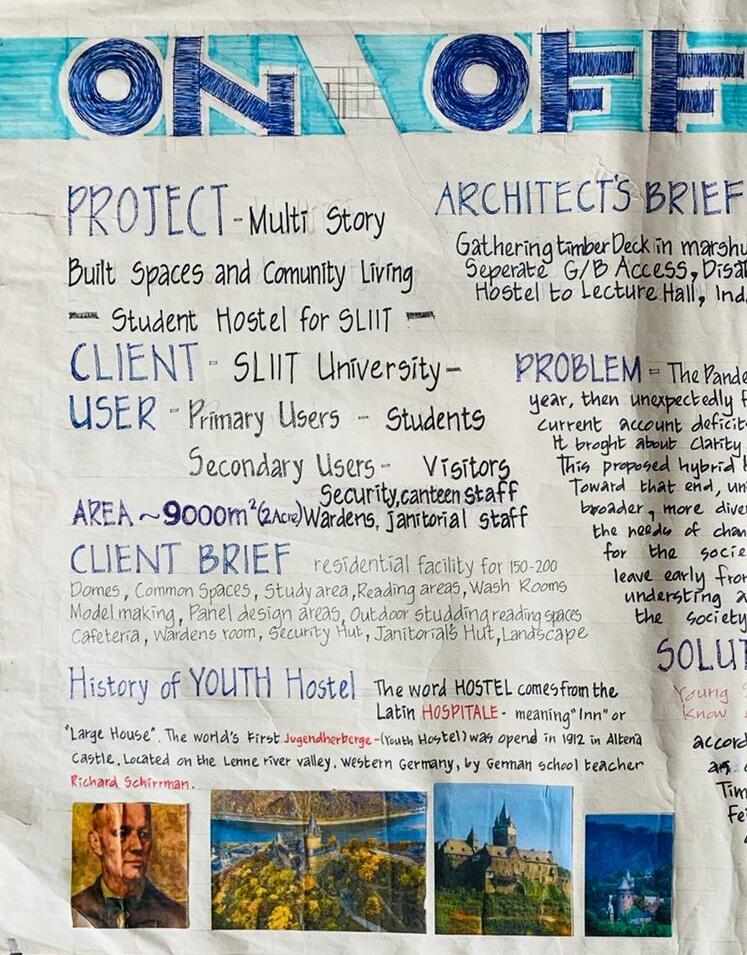 ON OFF
PROJECT - Multi Story
Built Spaces and Comunity Living
- Student Hostel for SLIIT -
CLIENT - SLIIT University -
USER - Primary Users - Students
Secondary Users - Visitors
Security, canteen staff
AREA ~ 9000m² (2Acre) Wardens, janitorial staff
CLIENT BRIEF residential facility for 150-200
Domes, Common Spaces, Study area, Reading areas, Wash Rooms
Model making, Panel design areas, Outdoor studding reading spaces
Cafeteria, Wardens room, Security Hut, Janitorial's Hut, Landscape
History of YOUTH Hostel The word HOSTEL comes from the
Latin HOSPITALE - meaning "Inn" or
"Large House". The world's First Jugendherberge - (Youth Hostel) was opend in 1912 in Altena
Castle. Located on the Lenne river valley. Western Germany, by German school teacher
Richard Schirrman.
ARCHITECT'S BRIEF
Gathering timber Deck in marshu
Seperate G/B Access, Disa
Hostel to Lecture Hall, Ind
PROBLEM - The Pande
year, then unexpectedly f
current account deficit
It broght about clarity
This proposed hybrid
Toward that end, un
broader, more dive
the needs of chan
for the socie
leave early from
understing a
the society
SOLUT
Young
know
accord
as
Tim
Fe